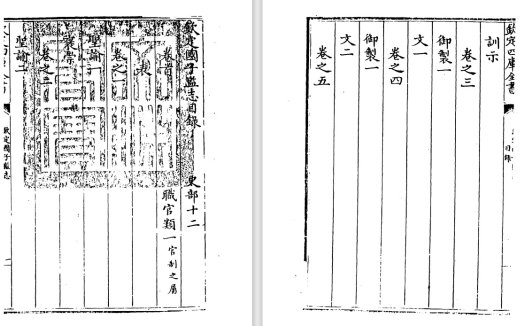 欽定國子監志目錄 史部十二
卷首 職官類一官制之屬
表
卷之一
聖諭一
卷之二
聖諭二
欽定國子監志
欽定四庫全書
目錄
訓示
卷之三
御製一
文一
卷之四
御製一
文二
卷之五